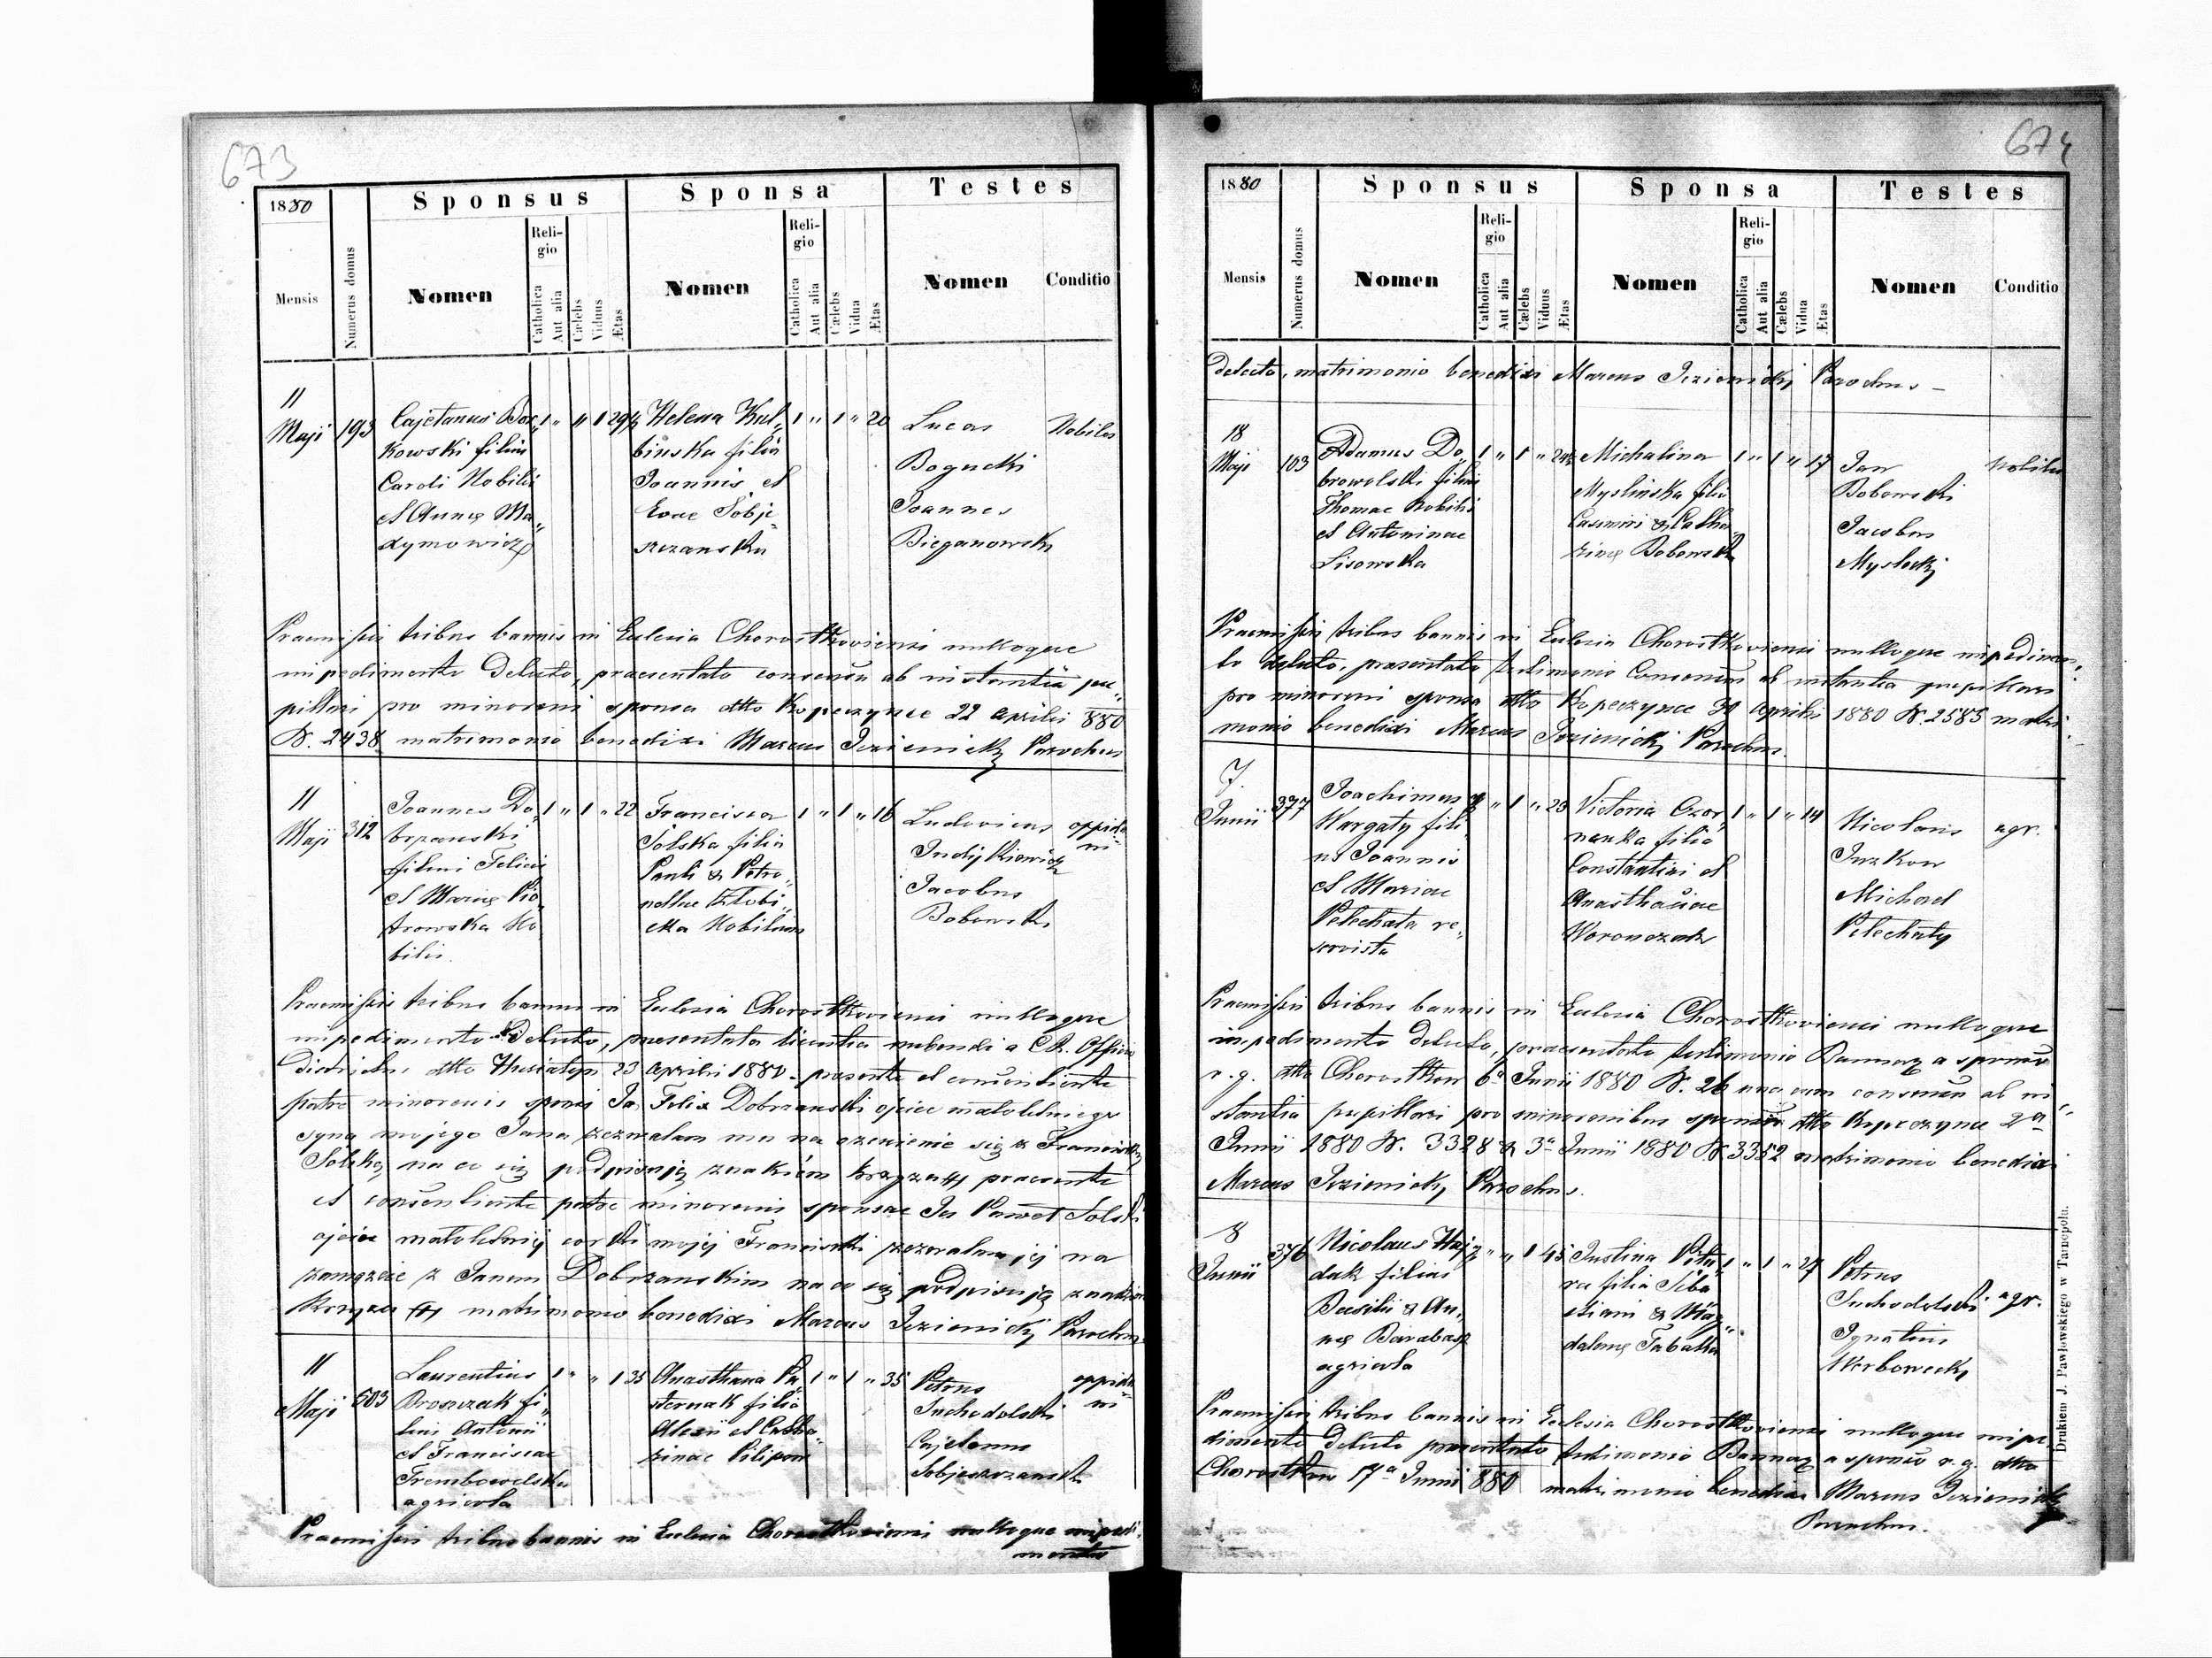 673
1880
Sponsus
Sponsa
Testes
Mensis
Numerus domus
Nomen
Religio
Catholica
Aut alia
Cælebs
Viduus
Ætas
Nomen
Religio
Catholica
Aut alia
Cælebs
Vidua
Ætas
Nomen
Conditio
11
Maji 193
Cajetanus Bor„
kowski filius
Caroli Nobilis
et Annę Ma„
xymowicz
1 „ „ 1 29½
Helena Kul„
binska filia
Joannis et
Evae Sobje„
szczanska
1 „ 1 „ 20
Lucas
Bogucki
Joannes
Bieganowski
Nobiles
Praemissis tribus bannis in Eclesia Chorostkoviensi nulloque
impedimento detecto, praesentato consensu ab instantia pu„
pillari pro minoreni sponsa dtto Kopeczynce 22 aprilis 880
N. 2438 matrimonio benedixi Marcus Jezienicky Parochus
11
Maji 312
Joannes Do„
brzanski
filius Felicis
et Marię Pio„
trowska No„
bilis.
1 „ 1 „ 22
Francisca
Solska filia
Pauli & Petro„
nellae Kłobi„
cka Nobilium
1 „ 1 „ 16
Ludovicus
Indÿkiewicz
Jacobus
Bobowski
oppida„
ni
Praemissis tribus bannis in Eclesia Chorostkoviensi nulloque
impedimento detecto, praesentata licentia nubendi a CR. Officio
Districtus dtto Husiatyn 23 aprilis 1880 - presente et consentiente
patre minorenis sponsi Ja Felix Dobrzanski ojciec małoletniego
syna mojego Jana zezwalam mu na ozenienie się z Franciszką
Solską na co się podpisuję znakiem krzyza + praesente
et consentiente patre minorenis sponsae Ja Paweł Solski
ojciec małoletnij corki mojej Franciszki zezwalam jej na
zamęzcie z Janem Dobrzanskim na co się podpisuję znakiem
krzyza + matrimonio benedixi Marcus Jezienickij Parochus
11
Maji 603
Laurentius
Broszczak fi„
lius Antonii
et Franciscae
Trembowelska
agricola
1 „ „ 1 35
Anasthasia Pa„
sternak filia
Alexii et Catha„
rinae Pilipow
1 „ 1 „ 35
Petrus
Suchodolski
Cajetanus
Sobjeszczanski
oppida„
ni
Praemissis tribus bannis in Eclesia Chorostkoviensi nulloque impedi„
mento
674
1880
Sponsus
Sponsa
Testes
Mensis
Numerus domus
Nomen
Religio
Catholica
Aut alia
Cælebs
Viduus
Ætas
Nomen
Religio
Catholica
Aut alia
Cælebs
Vidua
Ætas
Nomen
Conditio
detecto, matrimonio benedixi Marcus Jezienickij Parochus -
18
Maji 103
Adamus Do„
browolski filius
Thomae Nobilis
et Antoninae
Lisowska
1 „ 1 „ 24½
Michalina
Myslinska filia
Casimiri & Catha„
rinę Bobowska
1 „ 1 „ 17
Jan
Bobowski
Jacobus
Myslicky
Nobiles
Praemissis tribus bannis in Eclesia Chorostkoviensi nulloque impedimen„
to detecto, praesentato testimonio Consensus ab instantia pupillari
pro minoreni sponsa dtto Kopeczynce 30 aprilis 1880 N. 2585 matri„
monio benedixi Marcus Jezienickij Parochus.
7.
Junii 377
Joachimus
Wargaty fili„
us Joannis
et Mariae
Pelechata re„
servista
„ 1 „ 23
Victoria Czor„
nanka filia
Constantini et
Anasthasiae
Woronczak
1 „ 1 „ 14
Nicolaus
Juzkow
Michael
Pelechaty
agr.
Praemissis tribus bannis in Eclesia Chorostkoviensi nulloque
impedimento detecto, praesentato testimonio Bannorum a sponso
r. g. dtto Chorostkow 6ª Junii 1880 N. 26 una cum consensu ab in„
stantia pupillari pro minorenibus sponsis dtto Kopeczynce 2ª
Junii 1880 N. 3328 & 3ª Junii 1880 N. 3352 matrimonio benedixi
Marcus Jezienicky Parochus.
8
Junii 376
Nicolaus Haj„
dak filius
Basilii & An„
nę Barabasz
agricola
„ „ 1 45
Justina Petry„
ra filia Seba
stiani & Mag„
dalenę Tabaka
1 „ 1 „ 27
Petrus
Suchodolski
Ignatius
Werbowecky
agr.
Praemissis tribus bannis in Eclesia Chorostkoviensi nulloque impe„
dimento detecto praesentato testimonio Bannorum a sponso r. g. dtto
Chorostkow 17ª Junii 880 matrimonio benedixi Marcus Jezienicky
Parochus.
Drukiem J. Pawłowskiego w Tarnopolu.